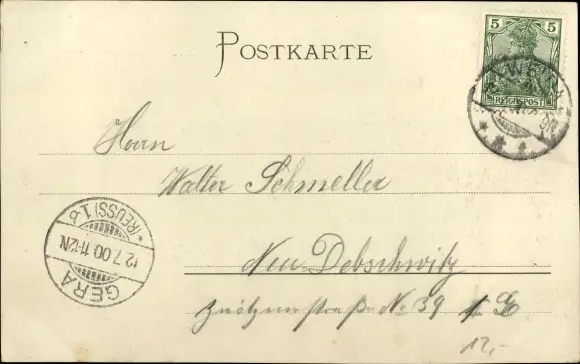 POSTKARTE
5 5
REICHSPOST
Herrn
Walter Schmeller
Neu-Debschwitz
straße No 39
GERA
12.7.00.11-12N.
*(REUSS) 1.b
12,-